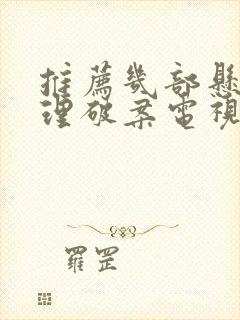 推薦幾部懸
理破案電視
羅罡